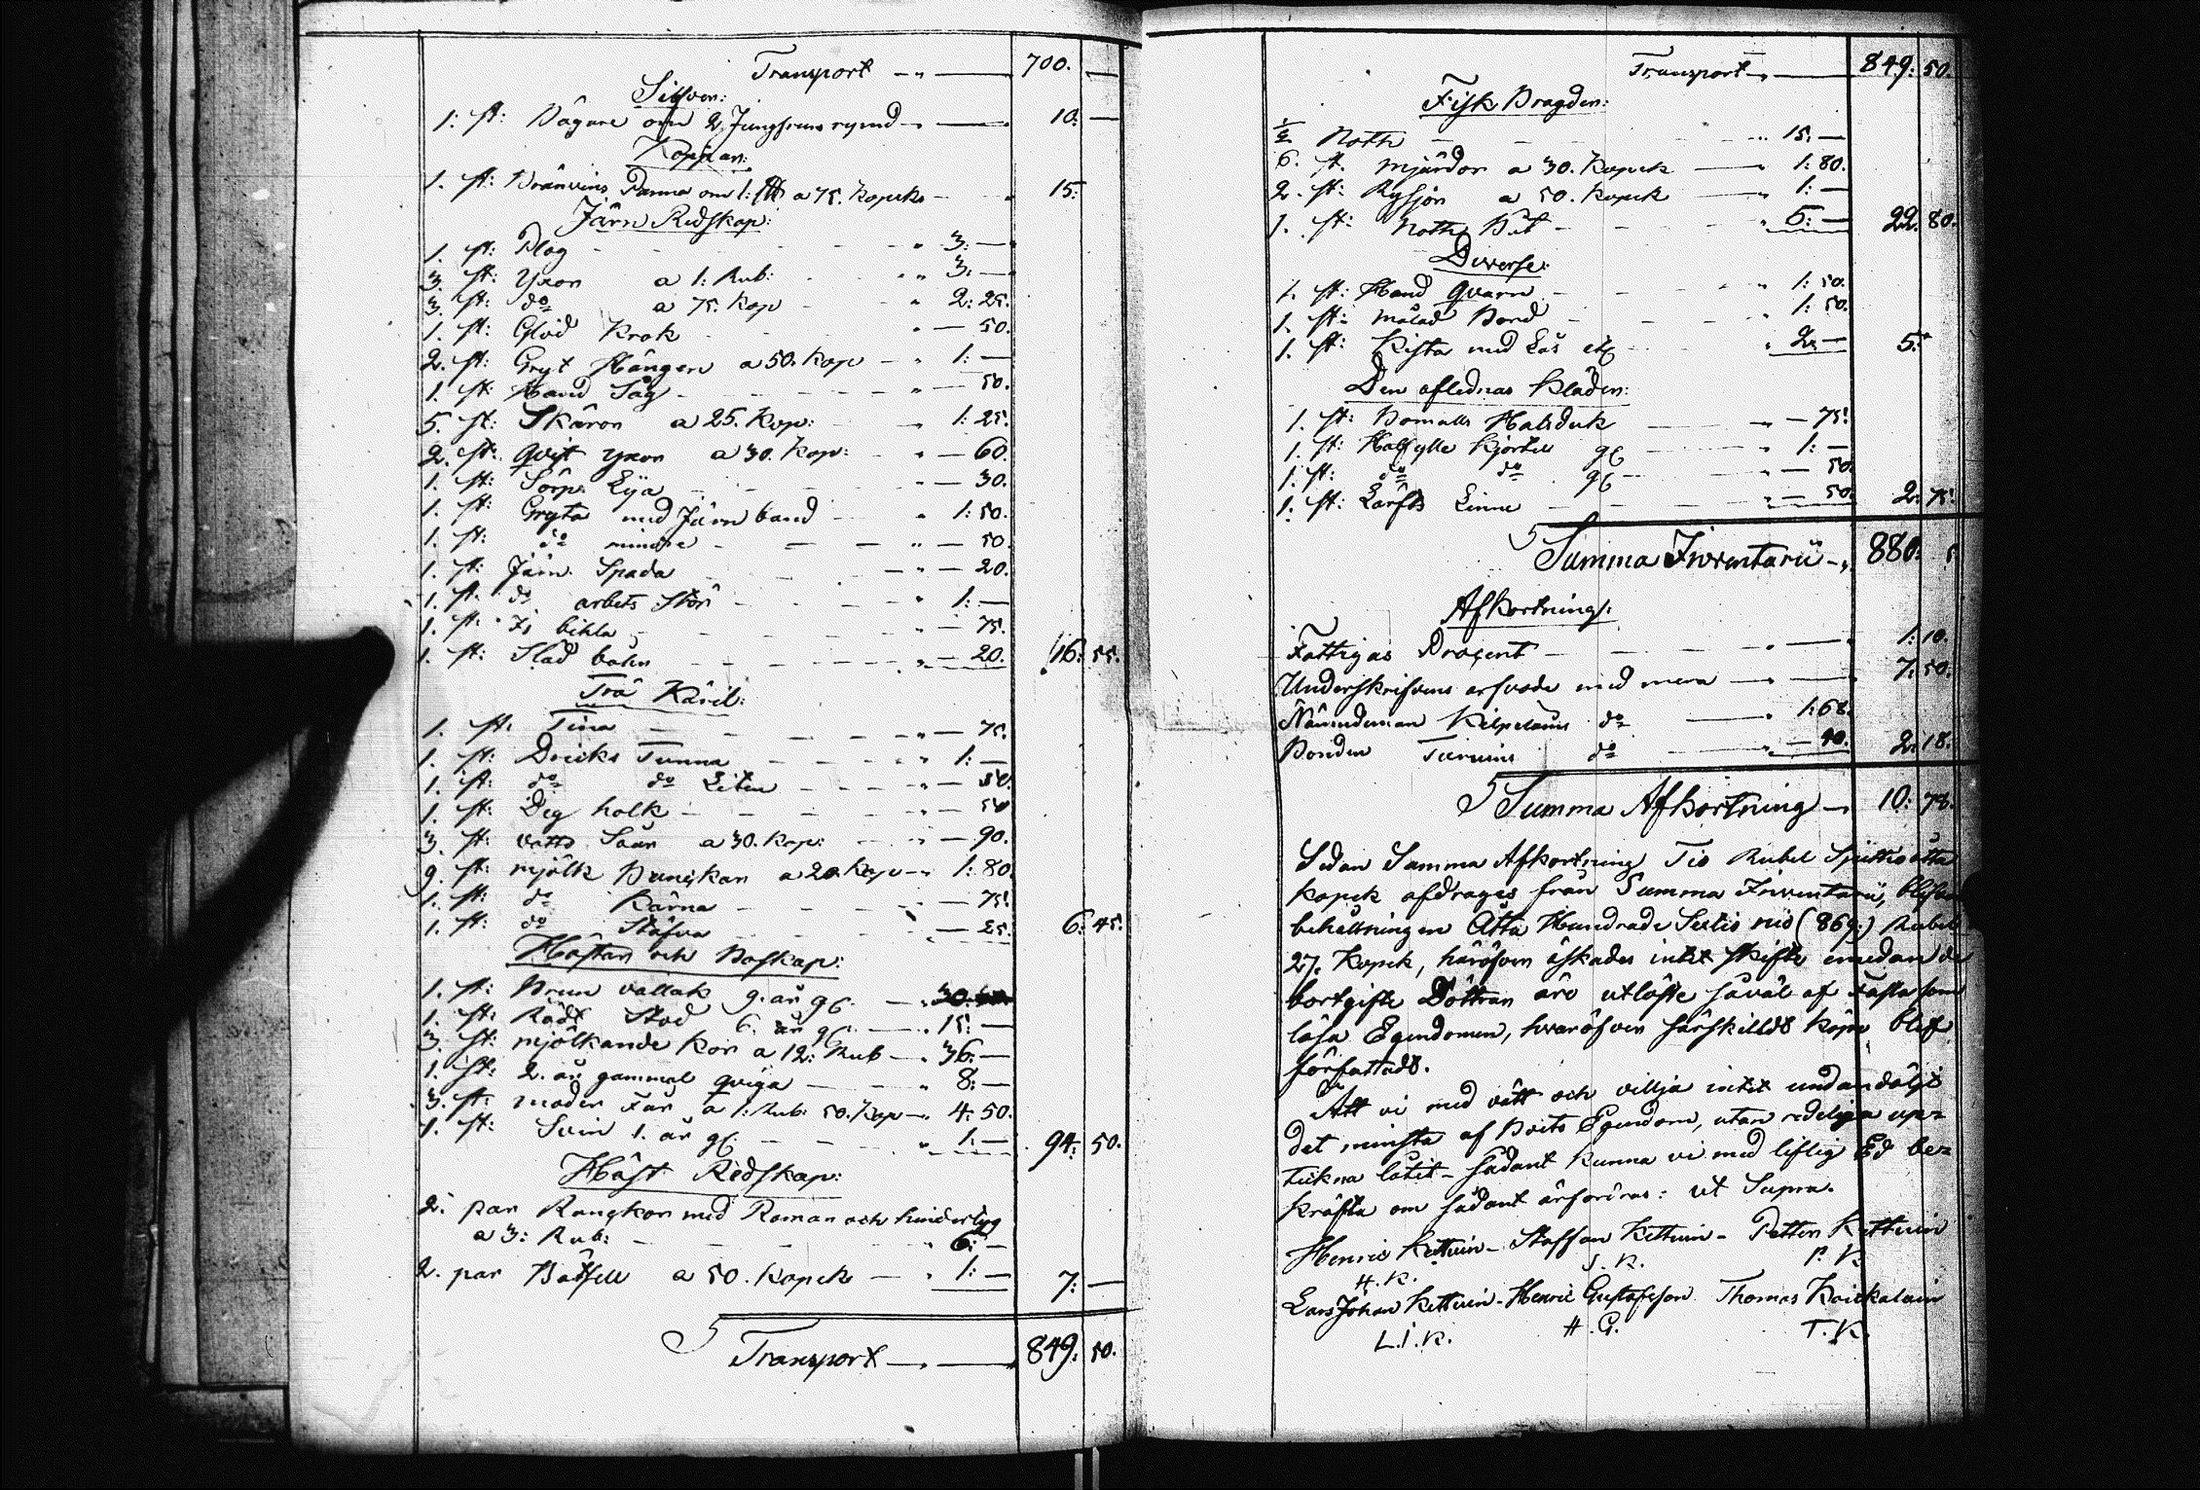 Transport - " - 700. -
Silfver:
1: st: Bägare om 2 Jungfrurs rymd - 10: -
Koppar:
1. st: Bränvins Panna om 1: a 75. kopeks - 15:
Järn Redskap:
1. st: Plog - " 3: -
3. st: Yxor a 1: Rub: - " 3: -
3. st: do a 75. kop - " 2: 25.
1. st: Glöd Krok " - 50.
2. st: Gryt Hängare a 50. kop - " 1: -
1. st: Hand Såg - " - 50.
5. st: Skäror a 25. kop: " 1: 25.
2. st: Qvist yxor a 30. kop: - " - 60.
1. st: Sörp. Lÿa - " - 30.
1. st: Gryta med Järn band - " 1: 50.
1. st: do mindre - " - 50.
1. st: Järn Spada - " - 20.
1. st: do arbets Stör - " 1: -
1. st: bihla - " - 75.
1. st: Slåd - " - 20. 16: 55.
Trä Käril:
1. st: Tina - " - 75.
1. st: Dricks Tunna - " 1: -
1. st: do do Liten - " - 50.
1. st: Deg holk - " - 50
3. st: vattu Såar a 30. kop: - " - 90.
9. st: mjölk Bunckar a 20. kop - " 1: 80.
1. st: do Kärna - " - 75.
1. st: do Stäfva - " - 25. 6: 45.
Hästar och Boskap:
1. st: Brun vallak 9. år gl. - " 30:
1. st: Rödt Stod 6. år gl. - " 15: -
3. st: mjölkande kor a 12: Rub - " 36: -
1. st: 2. år gammal qviga - " 8: -
3. st: moder Får a 1: Rub: 50. kop - " 4: 50.
1. st: Svin 1. år gl. - " 1: - 94: 50.
Häst Redskap:
2. par Rangkor med Roman och hindertyg
a 3: Rub: - " 6: -
2. par Båtsell a 50. kopek - " 1: - 7: -
Transport - " - 849: 50.
Transport - " - 849: 50.
Fisk Bragder:
1/2 Noth - " 15: -
6. st. mjärdor a 30. kopek - " 1: 80.
2. st: Rysjor a 50. kopek - " 1: -
1. st: Noth Båt - " 5: - 22. 80.
Diverse:
1. st: Hand Qvarn - " 1: 50.
1. st: målad Bord - " 1: 50.
1. st: Kista med Lås etc - " 2: - 5: -
Den aflednas Kläder:
1. st: Bomulls Halsduk - " - 75.
1. st: Halfylle Kjortel gl - " 1: -
1. st: do do gl - " - 50.
1. st: Lärfts Linne - " - 50. 2: 75.
Summa Inventarii - " 880: 5
Afkortning:
Fattigas Procent - " - 1: 10.
Underskrifvens arfvode med mera - " - 7: 50.
Nämndeman Kilpelains do - " 1: 68.
Bonden do - " - 50. 2: 18.
Summa Afkortning - " 10: 78.
Sedan Summa Afkortning Tio Rubel Sjuttioåtta
kopek afdrages från Summa Inventarii, blifver
behållningen Åtta Hundrade Sextio nio (869:) Rubel
27. kopek, häröfver äskades intet skifte emedan de
bortgifte Döttrar äro utlöste såväl af Fasta som
lösa Egendomen, hvaröfver särskildt köpe blef
författadt.
Att vi med vått och villja intet undandöljt
det minsta af Boets Egendom, utan redeligen up=
tekna låtit - sådant kunna vi med liflig Ed be=
kräfta om sådant ärfordras: ut Supra.
Henric Kettuin - Staffan Kettuin - Petter Kettuin
H. K. S. K. P. K.
Lars Johan Kettuin - Henric Gustafsson Thomas Kaickalain
L. J. K. H. G. T. K.